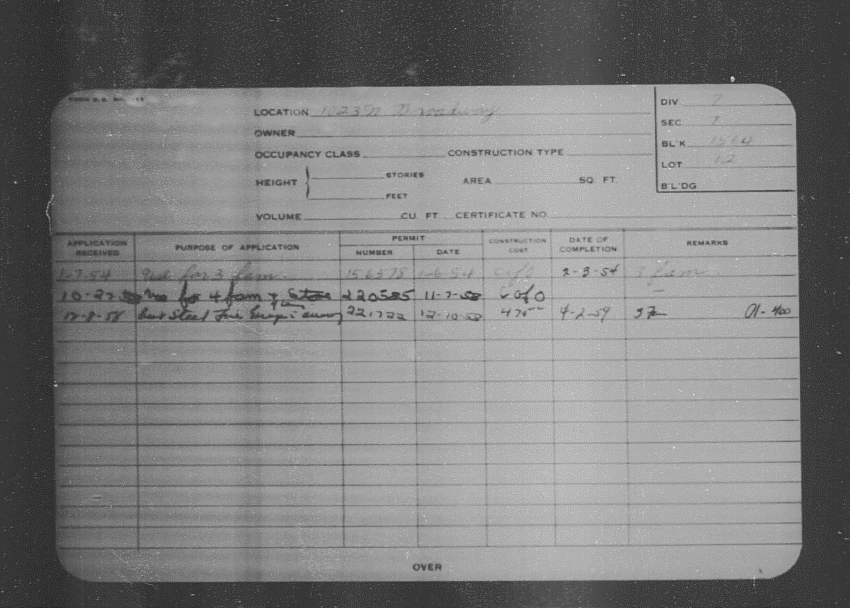 FORM B.B.
LOCATION 1023 N Broadway
OWNER
OCCUPANCY CLASS CONSTRUCTION TYPE
HEIGHT STORIES AREA SQ. FT.
FEET
VOLUME CU. FT. CERTIFICATE NO.
DIV 7
SEC 7
BL'K 1564
LOT 12
B'L'DG
APPLICATION RECEIVED PURPOSE OF APPLICATION PERMIT NUMBER DATE CONSTRUCTION COST DATE OF COMPLETION REMARKS
1-7-54 Use for 3 fam. 156575 1-6-54 C of O 2-3-54 3 fam
10-27-58 Use for 4 fam & Store 220585 11-7-58 C of O
12-8-58 Steel Fire Escape 221722 12-10-58 475 4-2-59 400
OVER